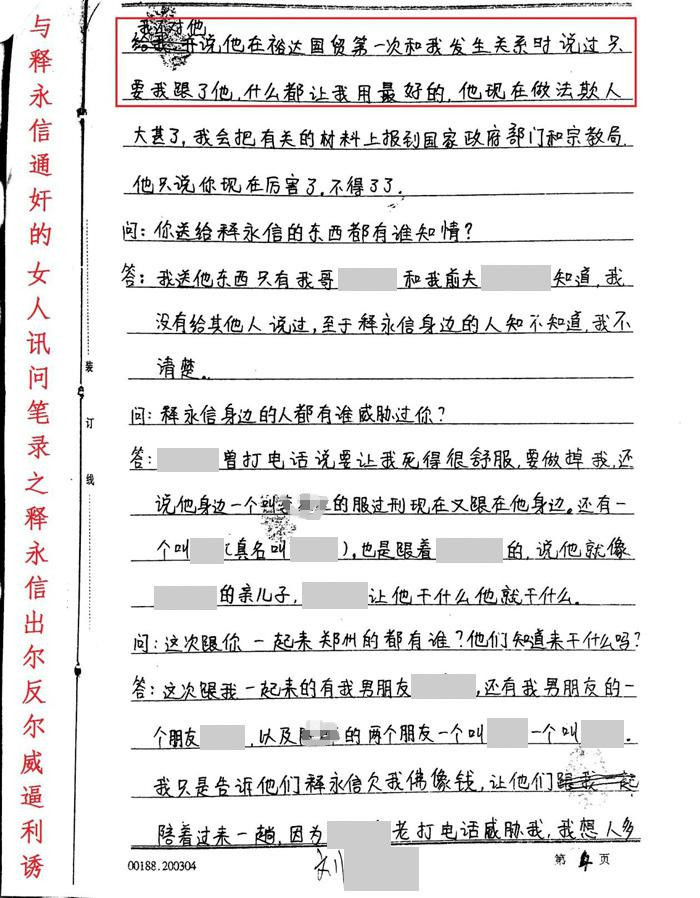 与释永信通奸的女人讯问笔录之释永信出尔反尔威逼利诱
装订线
我还对他
给我并说他在裕达国贸第一次和我发生关系时说过只
要我跟了他,什么都让我用最好的,他现在做法欺人
大甚了,我会把有关的材料上报到国家政府部门和宗教局.
他只说你现在厉害了.不得了了.
问:你送给释永信的东西都有谁知情?
答:我送他东西只有我哥 和我前夫 知道,我
没有给其他人说过,至于释永信身边的人知不知道,我不
清楚。
问:释永信身边的人都有谁威胁过你?
答: 曾打电话说要让我死得很舒服,要做掉我,还
说他身边一个 的服过刑现在又跟在他身边。还有一
个叫 (真名叫 ).也是跟着 的,说他就像
的亲儿子, 让他干什么他就干什么.
问:这次跟你一起来郑州的都有谁?他们知道来干什么吗?
答:这次跟我一起来的有我男朋友 ,还有我男朋友的一
个朋友 ,以及 的两个朋友一个叫 一个叫 .
我只是告诉他们释永信欠我佛像钱,让他们跟我一起
陪着过来一趟,因为 老打电话威胁我,我想人多
00188.200304
第 4 页
刘